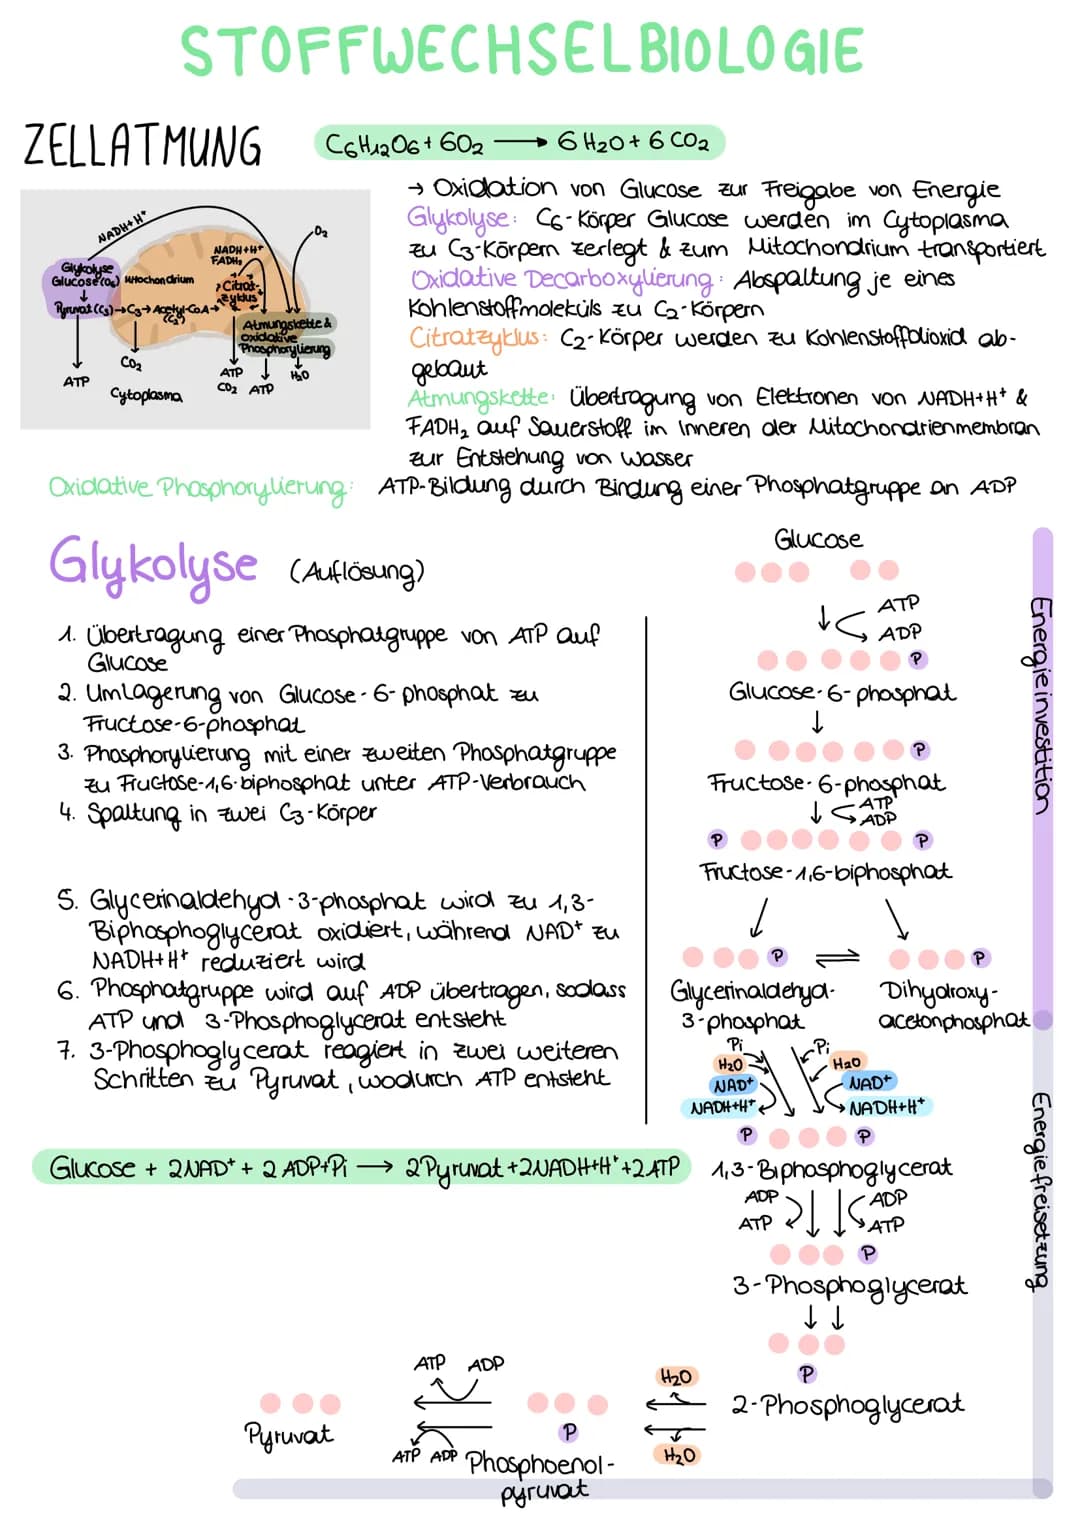 STOFFWECHSELBIOLOGIE
ZELLATMUNG
C6H12O6 + 6O2 → 6 H2O + 6 CO2
NADH+H+
O2
NADH+H+
FADH2
Glykolyse
Glucose (C6)
Mitochondrium
Citrat-
zyklus
↓
Pyruvat (C3) → C3 → Acetyl-CoA →
(C2)
Atmungskette &
oxidative
Phosphorylierung
ATP
CO2
Cytoplasma
ATP
CO2
ATP
H2O
→ Oxidation von Glucose zur Freigabe von Energie
Glykolyse: C6-Körper Glucose werden im Cytoplasma
zu C3-Körpern zerlegt & zum Mitochondrium transportiert
Oxidative Decarboxylierung: Abspaltung je eines
Kohlenstoffmoleküls zu C2-Körpern
Citratzyklus: C2-Körper werden zu Kohlenstoffdioxid ab-
gebaut
Atmungskette: Übertragung von Elektronen von NADH+H+ &
FADH2 auf Sauerstoff im Inneren der Mitochondrienmembran
zur Entstehung von Wasser
Oxidative Phosphorylierung: ATP-Bildung durch Bindung einer Phosphatgruppe an ADP
Glykolyse (Auflösung)
1. Übertragung einer Phosphatgruppe von ATP auf
Glucose
2. Umlagerung von Glucose-6-phosphat zu
Fructose-6-phosphat
3. Phosphorylierung mit einer zweiten Phosphatgruppe
zu Fructose-1,6-biphosphat unter ATP-Verbrauch
4. Spaltung in zwei C3-Körper
5. Glycerinaldehyd-3-phosphat wird zu 1,3-
Biphosphoglycerat oxidiert, während NAD+ zu
NADH+H+ reduziert wird
6. Phosphatgruppe wird auf ADP übertragen, sodass
ATP und 3-Phosphoglycerat entsteht
7. 3-Phosphoglycerat reagiert in zwei weiteren
Schritten zu Pyruvat, wodurch ATP entsteht
Glucose + 2NAD+ + 2 ADP+Pi → 2Pyruvat+2NADH+H++2ATP
Glucose
ATP
ADP
P
Glucose-6-phosphat
P
Fructose-6-phosphat
ATP
ADP
P P
Fructose-1,6-biphosphat
P P
Glycerinaldehyd-
3-phosphat
Dihydroxy-
acetonphosphat
Pi Pi
H2O H2O
NAD+ NAD+
NADH+H+ NADH+H+
P P
1,3-Biphosphoglycerat
ADP ADP
ATP ATP
P
3-Phosphoglycerat
P
2-Phosphoglycerat
H2O
H2O
P
Phosphoenol-
pyruvat
ATP ADP
ATP ADP
Pyruvat
Energieinvestition
Energiefreisetzung